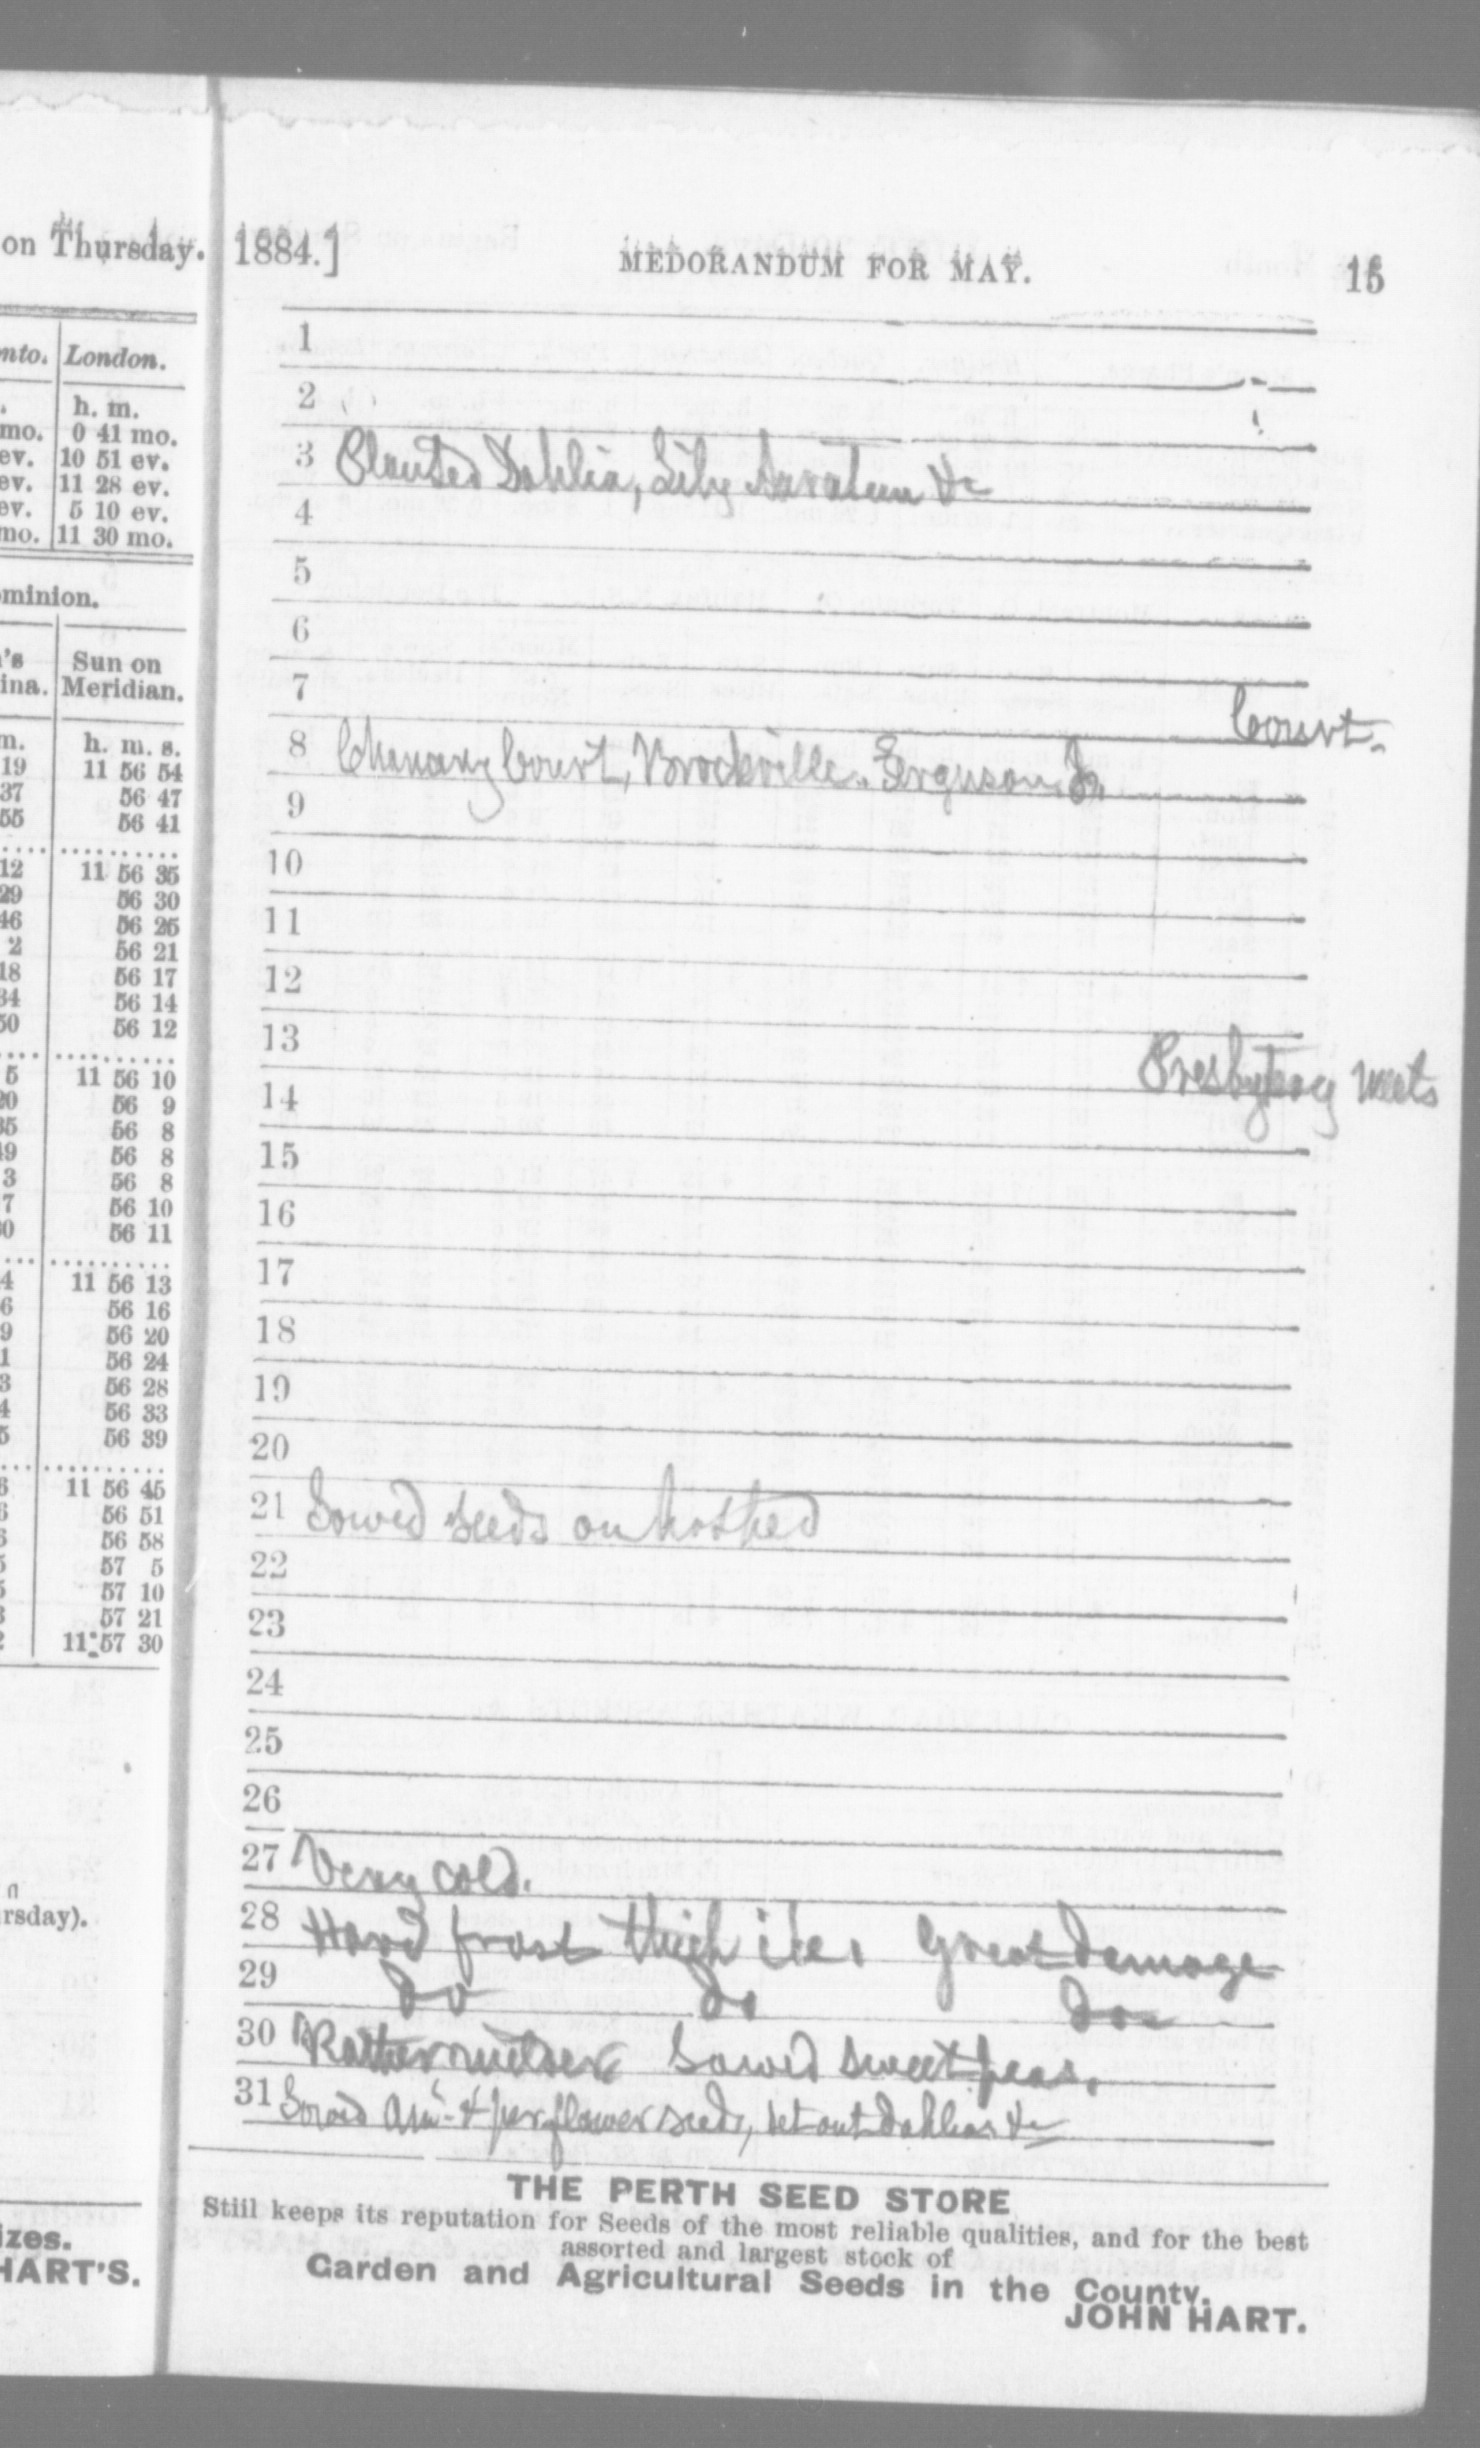 on Thursday.
nto. London.
h. m.
mo. 0 41 mo.
ev. 10 51 ev.
ev. 11 28 ev.
ev. 5 10 ev.
mo. 11 30 mo.
ominion.
's Sun on
ina. Meridian.
m. h. m. s.
19 11 56 54
37 56 47
55 56 41
12 11 56 35
29 56 30
46 56 25
2 56 21
18 56 17
34 56 14
50 56 12
5 11 56 10
20 56 9
35 56 8
49 56 8
3 56 8
7 56 10
30 56 11
4 11 56 13
6 56 16
9 56 20
1 56 24
3 56 28
4 56 33
5 56 39
6 11 56 45
6 56 51
6 56 58
5 57 5
5 57 10
3 57 21
2 11 57 30
rsday).
izes.
HART'S.
1884.] MEDORANDUM FOR MAY. 15
1
2
3 Planted Dahlia, Lily &c
4
5
6
7 Court.
8 Chancery Court, Brockville. Ferguson, J.
9
10
11
12
13 Presbytery meets
14
15
16
17
18
19
20
21 Sowed seeds on hotbed
22
23
24
25
26
27 Very cold.
28 Hard frost thick ice. Great damage
29 do do do
30 Rather milder Sowed sweet peas.
31 Sowed Anl & per flower seeds, set out Dahlias &c
THE PERTH SEED STORE
Still keeps its reputation for Seeds of the most reliable qualities, and for the best
assorted and largest stock of
Garden and Agricultural Seeds in the County.
JOHN HART.